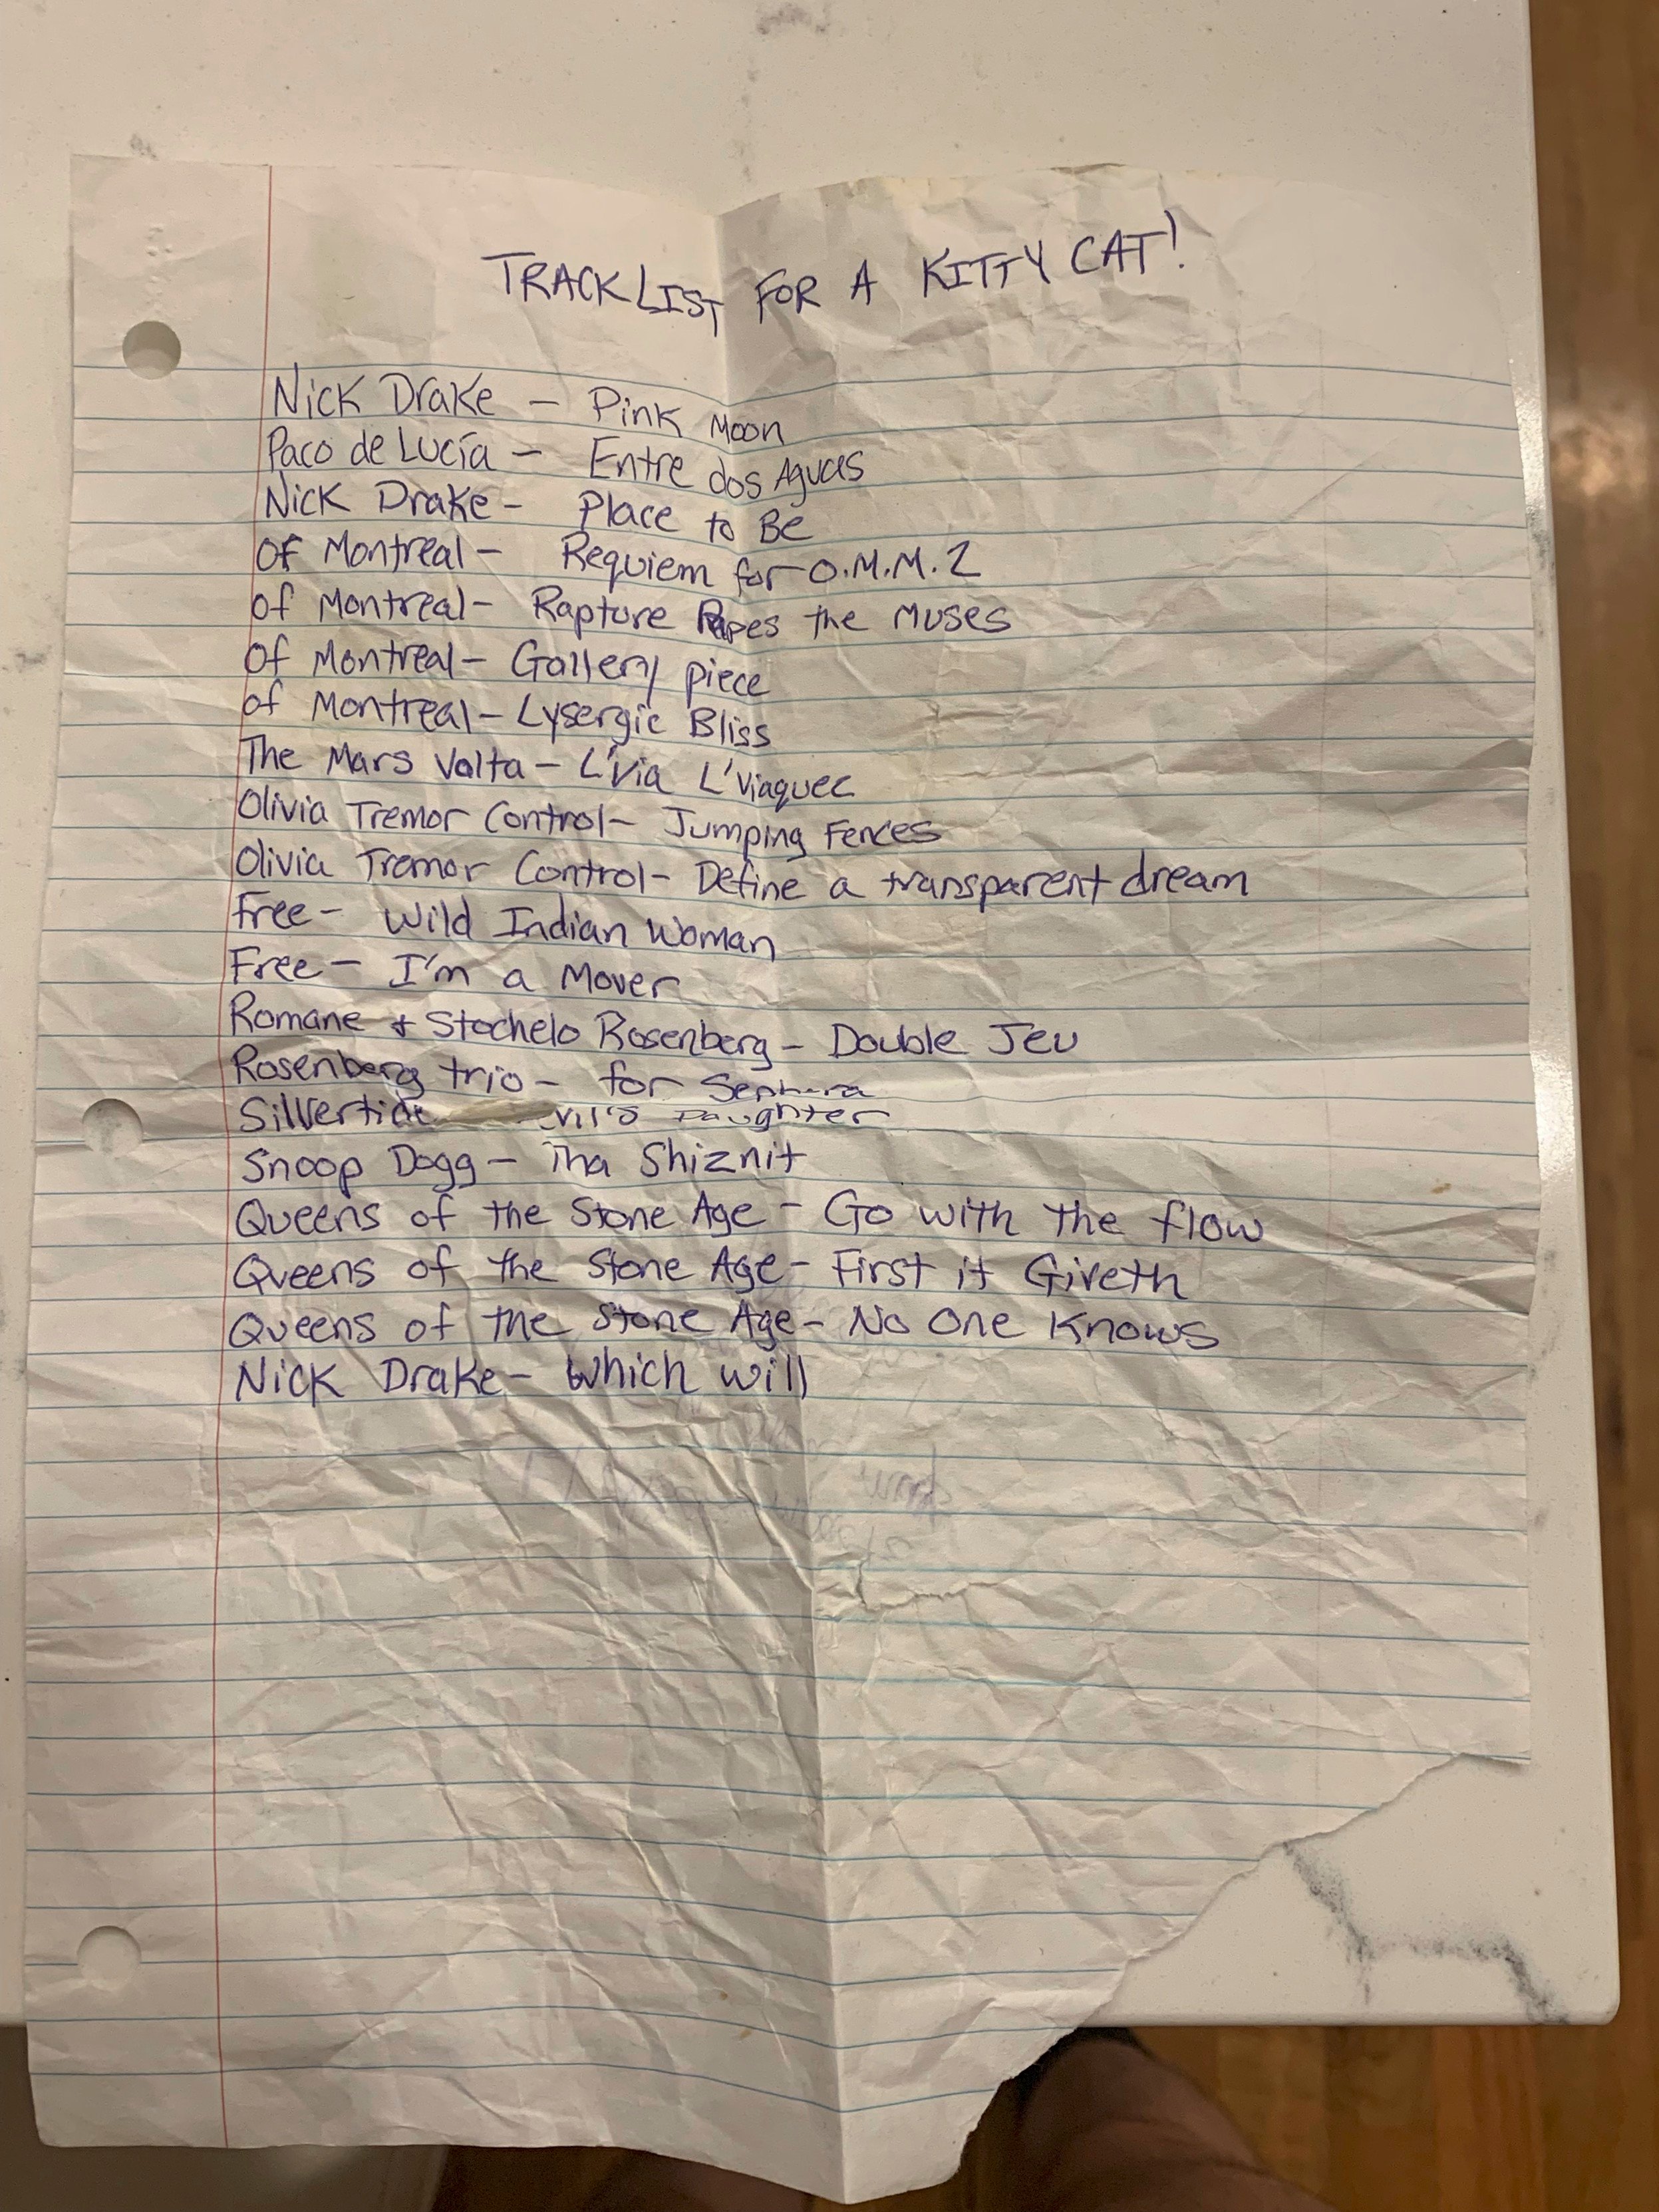 TRACKLIST FOR A KITTY CAT!
Nick Drake - Pink Moon
Paco de Lucía - Entre dos Aguas
Nick Drake - Place to Be
of Montreal - Requiem for O.M.M.2
of Montreal - Rapture Rapes the Muses
of Montreal - Gallery piece
of Montreal - Lysergic Bliss
The Mars Volta - L'Via L'Viaquez
Olivia Tremor Control - Jumping Fences
Olivia Tremor Control - Define a transparent dream
Free - Wild Indian Woman
Free - I'm a Mover
Romane + Stochelo Rosenberg - Double Jeu
Rosenberg trio - for Sephora
Silvertide vil's Daughter
Snoop Dogg - Tha Shiznit
Queens of the Stone Age - Go with the flow
Queens of the Stone Age - First it Giveth
Queens of the Stone Age - No One Knows
Nick Drake - Which will